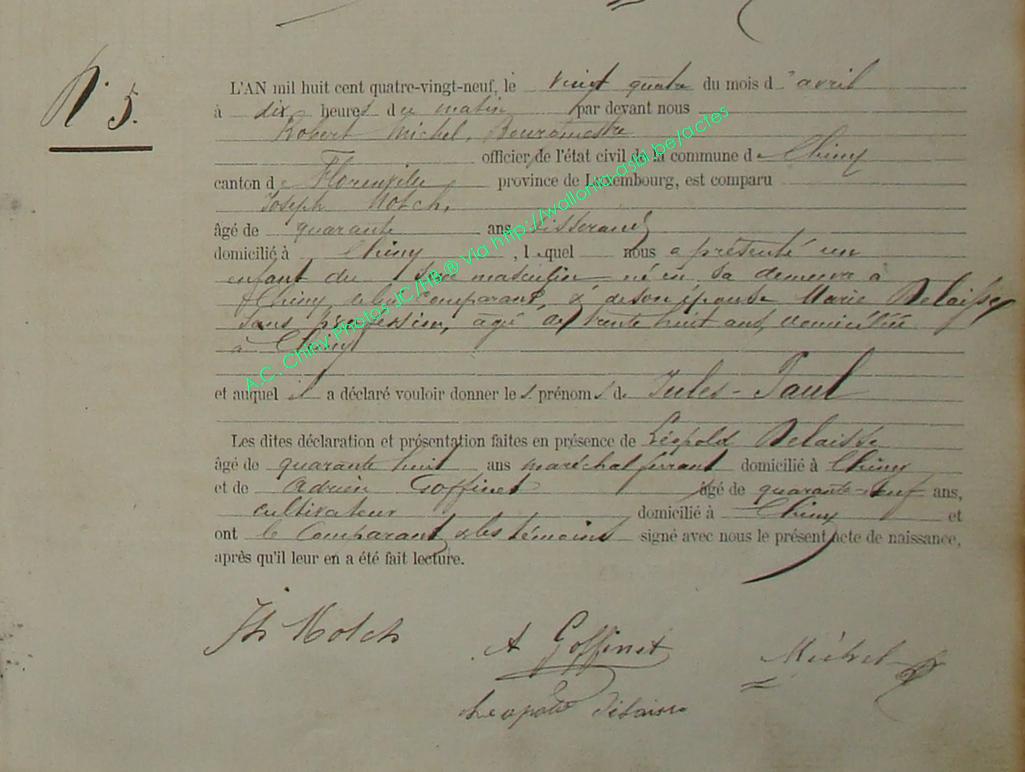 N° 5.
L'AN mil huit cent quatre-vingt-neuf, le vingt quatre du mois d'avril
à dix heures du matin par devant nous
Robert Michel, Bourgmestre
officier de l'état civil de la commune de Chiny
canton de Florenville province de Luxembourg, est comparu
Joseph Noich,
âgé de quarante ans tisserand
domicilié à Chiny, lequel nous a présenté un
enfant du sexe masculin né en sa demeure à
Chiny de lui comparant, & de son épouse Marie Delaisse
sans profession, âgé de trente huit ans, domiciliée
à Chiny
et auquel il a déclaré vouloir donner les prénoms de Jules-Paul
Les dites déclaration et présentation faites en présence de Léopold Delaisse
âgé de quarante huit ans maréchal ferrant domicilié à Chiny
et de Adrien Goffinet âgé de quarante-neuf ans,
cultivateur domicilié à Chiny et
ont le comparant & les témoins signé avec nous le présent acte de naissance,
après qu'il leur en a été fait lecture.
A Goffinet
Michel
Leopold Delaisse
A.C. Chiny Photos JC/HB ® via http://wallonia-asbl.be/actes